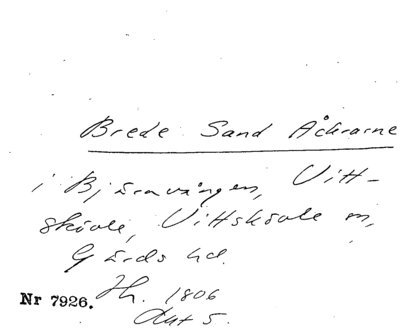 Brede Sand Åkrarne
i Bjäravången, Vitt-
skövle, Vittskövle sn,
Gärds hd.
Nr 7926. Jh. 1806
Akt 5.